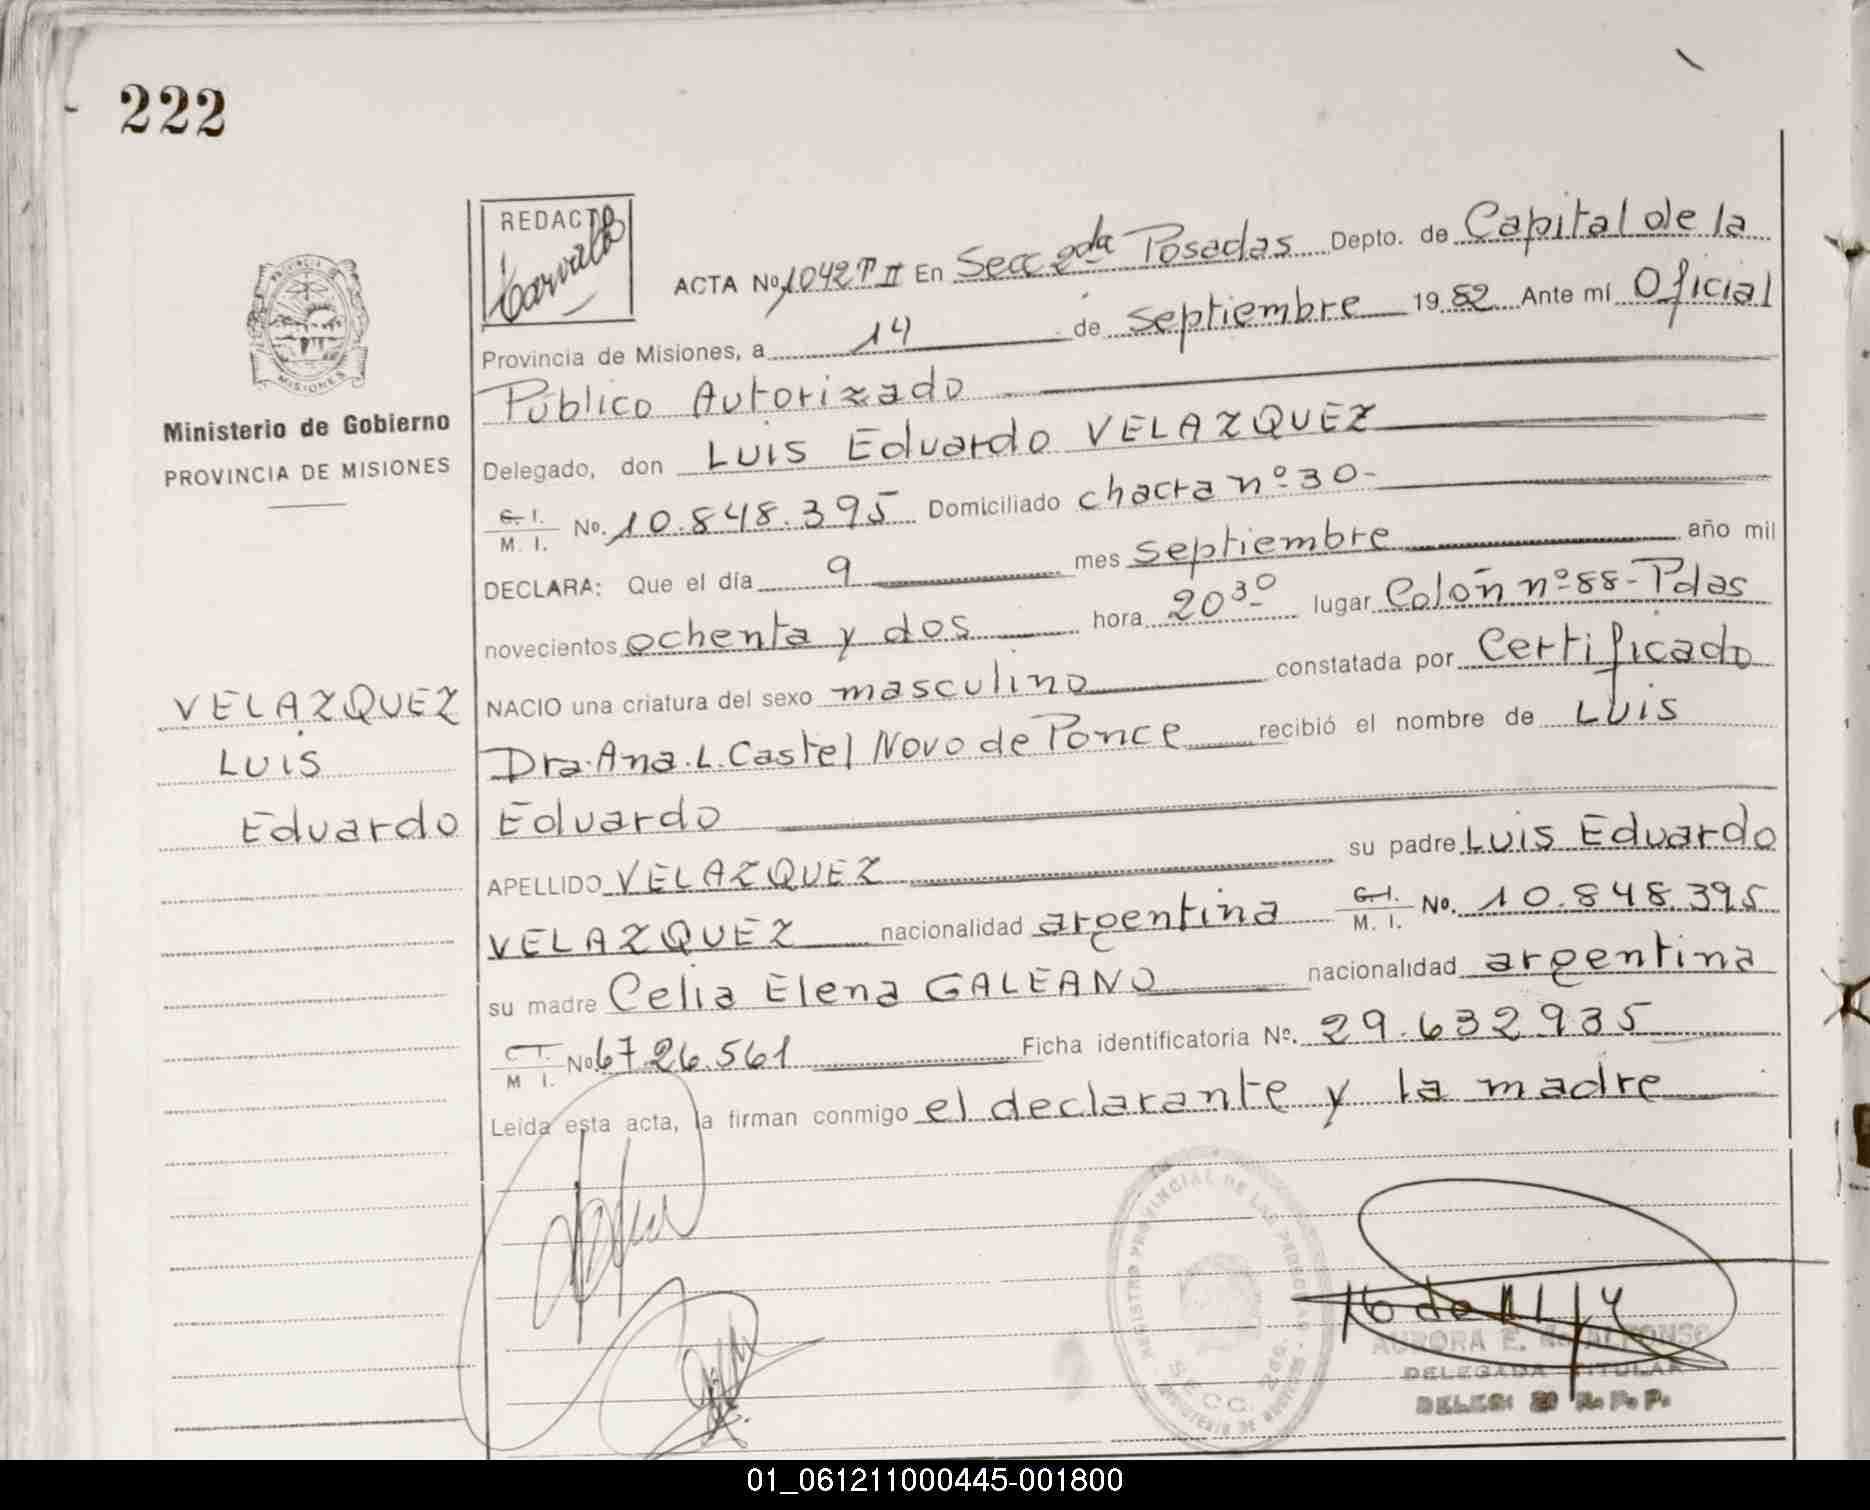 222
REDACTO
ACTA No 1042 T II En Secc 2da Posadas Depto. de Capital de la
Provincia de Misiones, a 14 de Septiembre 1982 Ante mí Oficial
Público Autorizado
Delegado, don Luis Eduardo VELAZQUEZ
C. I. M. I. No. 10.848.395 Domiciliado chacra nº 30-
DECLARA: Que el día 9 mes septiembre año mil
novecientos ochenta y dos hora 20 30 lugar Colón nº 88 - Pdas
NACIO una criatura del sexo masculino constatada por Certificado
Dra. Ana. L. Castel Novo de Ponce recibió el nombre de Luis
Eduardo
APELLIDO VELAZQUEZ su padre Luis Eduardo
VELAZQUEZ nacionalidad argentina C. I. M. I. No. 10.848.395
su madre Celia Elena GALEANO nacionalidad argentina
C. I. M. I. No 6726.561 Ficha identificatoria Nº. 29.632.935
Leída esta acta, la firman conmigo el declarante y la madre
PROVINCIA DE
MISIONES
Ministerio de Gobierno
PROVINCIA DE MISIONES
VELAZQUEZ
Luis
Eduardo
REGISTRO PROVINCIAL DE LAS PERSONAS
SECC. 2da.
AURORA E. de ALFONSO
DELEGADA TITULAR
DELEG: 2ª R. P. P.
01_061211000445-001800